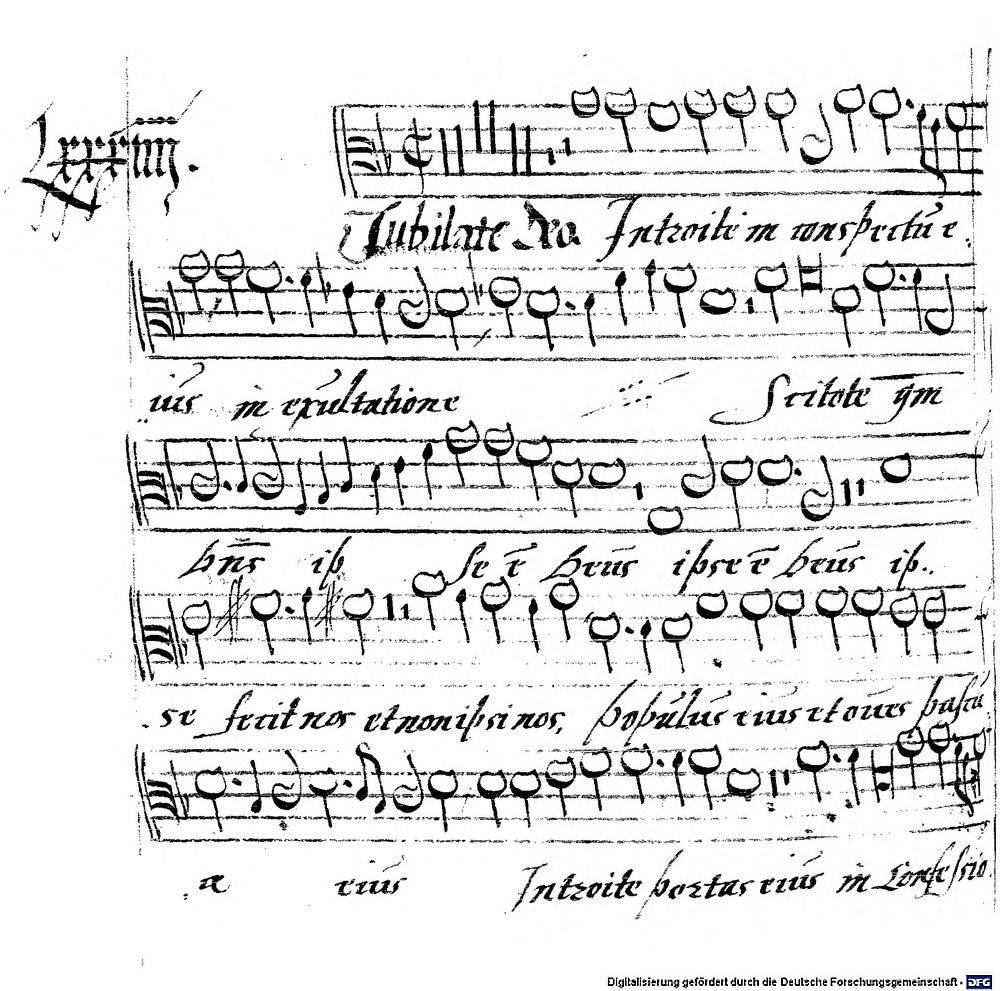 Lxxxiiii.
Jubilate Deo. Introite in conspectū e.
iūs in exūltatione Scitote qm̄
Dn̄s ip se ē Deūs ipse ē Deūs ip..
se fecit nos et non ipsi nos, popūlūs eiūs et oues pascū
æ eiūs Introite portas eiūs in Confessio
Digitalisierung gefördert durch die Deutsche Forschungsgemeinschaft - DFG